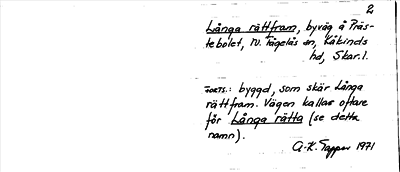 2
Långa rättfram, byväg å Präs-
tebolet, nv. Fågelås sn, Kåkinds
hd, Skar.l.
FORTS.: byggd, som skär Långa
rättfram. Vägen kallas oftare
för Långa rätta (se detta
namn).
A.-K. Tapper 1971